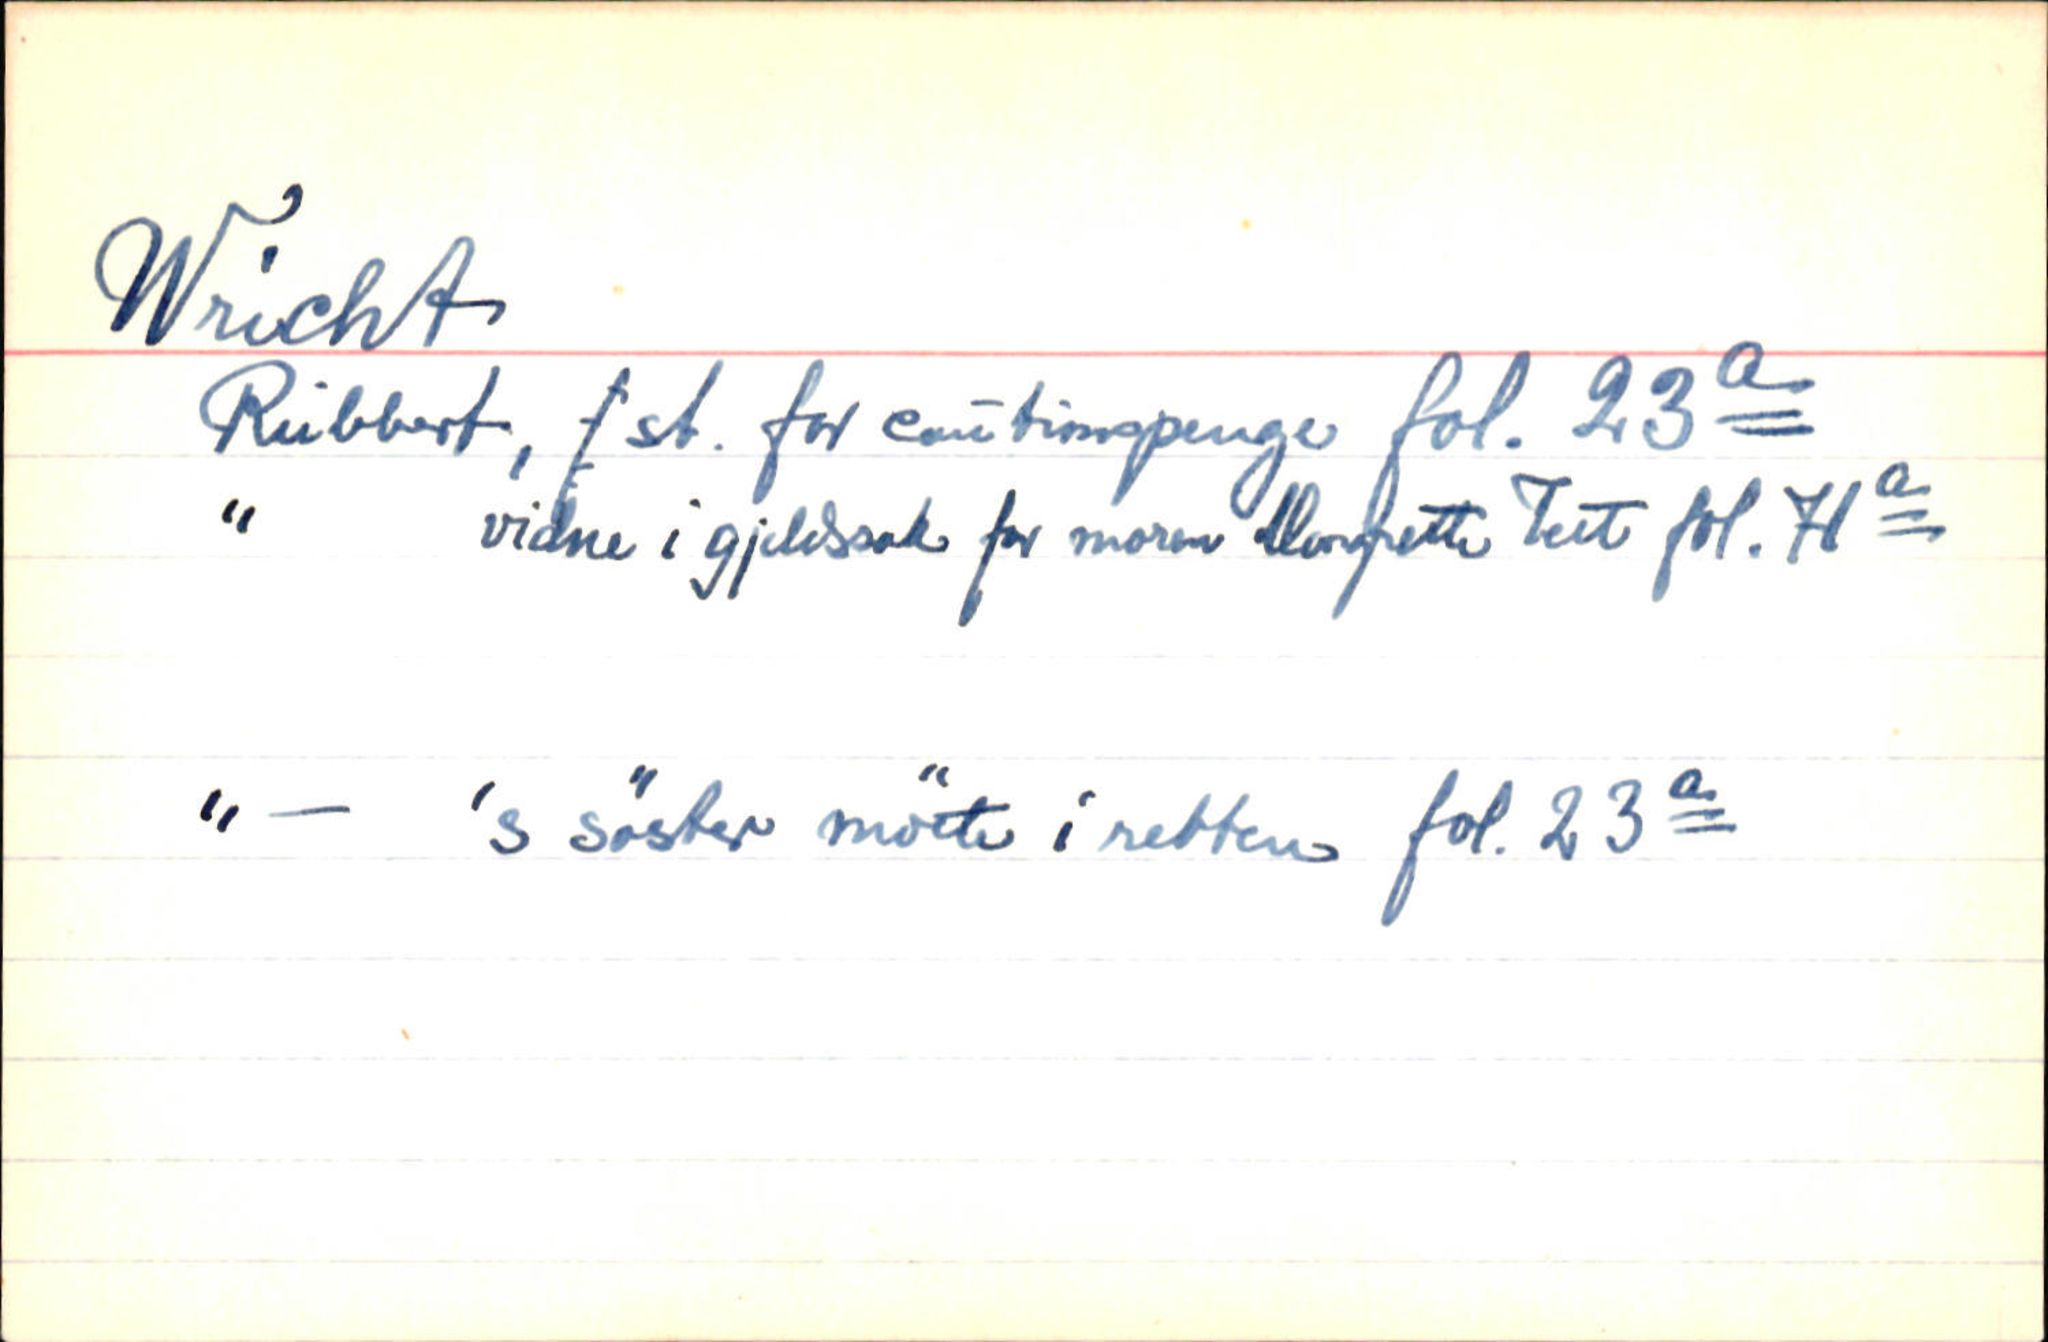 Wricht
Rübbert, f st. for cautionspenge fol. 23 a
" vidne i gjeldssak for moren Margrette Teit fol. 71 a
" — 's söster mötte i retten fol. 23 a